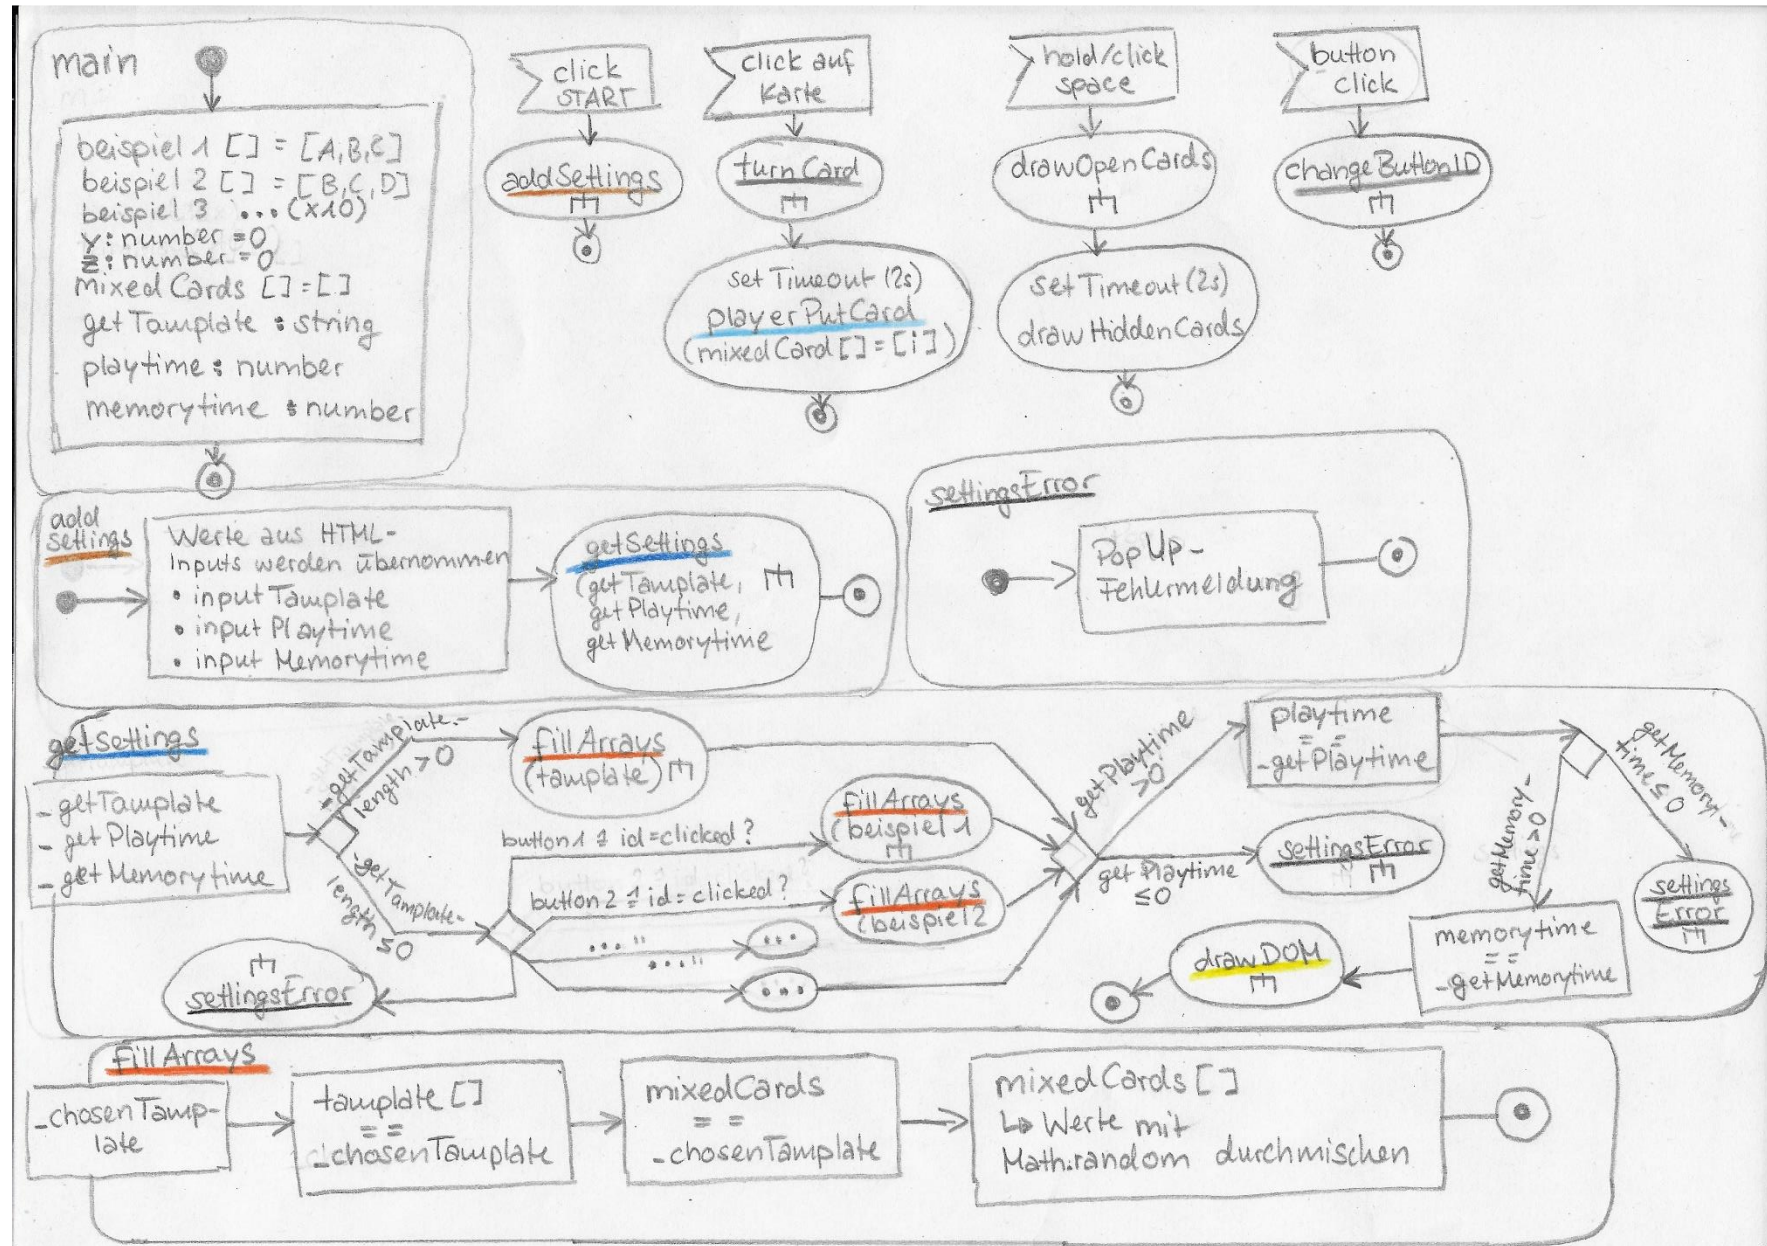 main
beispiel 1 [] = [A,B,C]
beispiel 2 [] = [B,C,D]
beispiel 3 ... (x10)
y: number = 0
z: number = 0
mixedCards [] = []
getTamplate : string
playtime : number
memorytime : number
click
START
addSettings
click auf
Karte
turnCard
setTimeout (2s)
playerPutCard
(mixedCard[] = [i])
hold/click
space
drawOpenCards
setTimeout (2s)
drawHiddenCards
button
click
changeButtonID
add
settings
Werte aus HTML-
Inputs werden übernommen
• input Tamplate
• input Playtime
• input Memorytime
getSettings
(getTamplate,
getPlaytime,
getMemorytime
settingsError
PopUp-
Fehlermeldung
getSettings
_ getTamplate
_ getPlaytime
_ getMemorytime
_getTamplate.-
length > 0
fillArrays
(tamplate)
_getTamplate-
length ≤ 0
settingsError
button1 id=clicked?
fillArrays
(beispiel 1
button2 id=clicked?
fillArrays
(beispiel 2
...."
...
...."
...
getPlaytime
>0
playtime
==
_getPlaytime
getPlaytime
≤0
settingsError
getMemory-
time ≤ 0
settings
Error
getMemory-
time >0
memorytime
==
_getMemorytime
drawDOM
fillArrays
_chosenTamp-
late
tamplate []
==
_chosenTamplate
mixedCards
==
_chosenTamplate
mixedCards []
↳ Werte mit
Math.random durchmischen